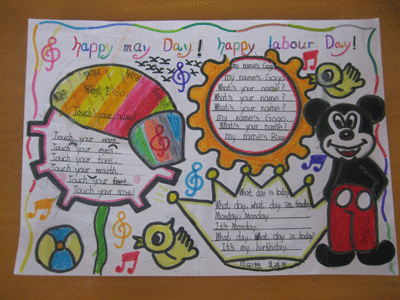 happy may Day! happy labour Day!
you
Yes, I do.
Touch your nose!
Touch your eyes.
Touch your toes.
Touch your mouth.
Touch your feet.
Touch your nose!
my name's Gogo.
my name's Gogo.
What's your name?
What's your name?
What's your name?
my name's Gogo.
What's your name?
my name's
What day is today
What day, what day is today
Monday, Monday.
It's Monday.
What day, What day is today?
It's my birthday.